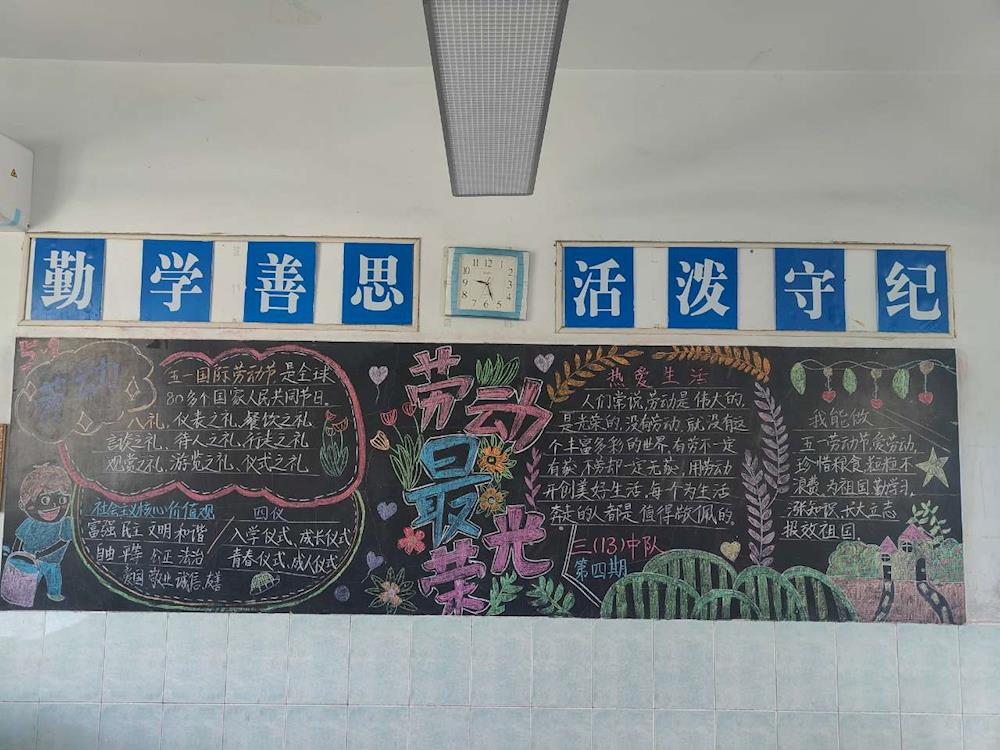 勤学善思
活泼守纪
12
11
1
10
2
9
3
8
4
7
5
6
劳动
五一国际劳动节,是全球
80多个国家人民共同节日。
八礼、仪表之礼、餐饮之礼
言谈之礼、待人之礼、行走之礼
观赏之礼、游览之礼、仪式之礼
社会主义核心价值观
富强 民主 文明 和谐
自由 平等 公正 法治
爱国 敬业 诚信 友善
四仪
入学仪式、成长仪式
青春仪式、成人仪式
劳动
最
光
荣
热爱生活
人们常说,劳动是伟大的,
是光荣的,没有劳动,就没有这
个丰富多彩的世界,有劳不一定
有获,不劳却一定无获,用劳动
开创美好生活,每个为生活
奔走的人都是值得敬佩的。
三(13)中队
第四期
我能做
五一劳动节爱劳动,
珍惜粮食,粒粒不
浪费,为祖国勤学习,
涨知识,长大立志
报效祖国.